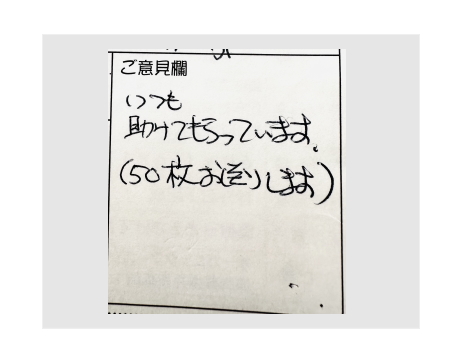 ご意見欄
いつも
助けてもらっています。
(50枚お送りします)